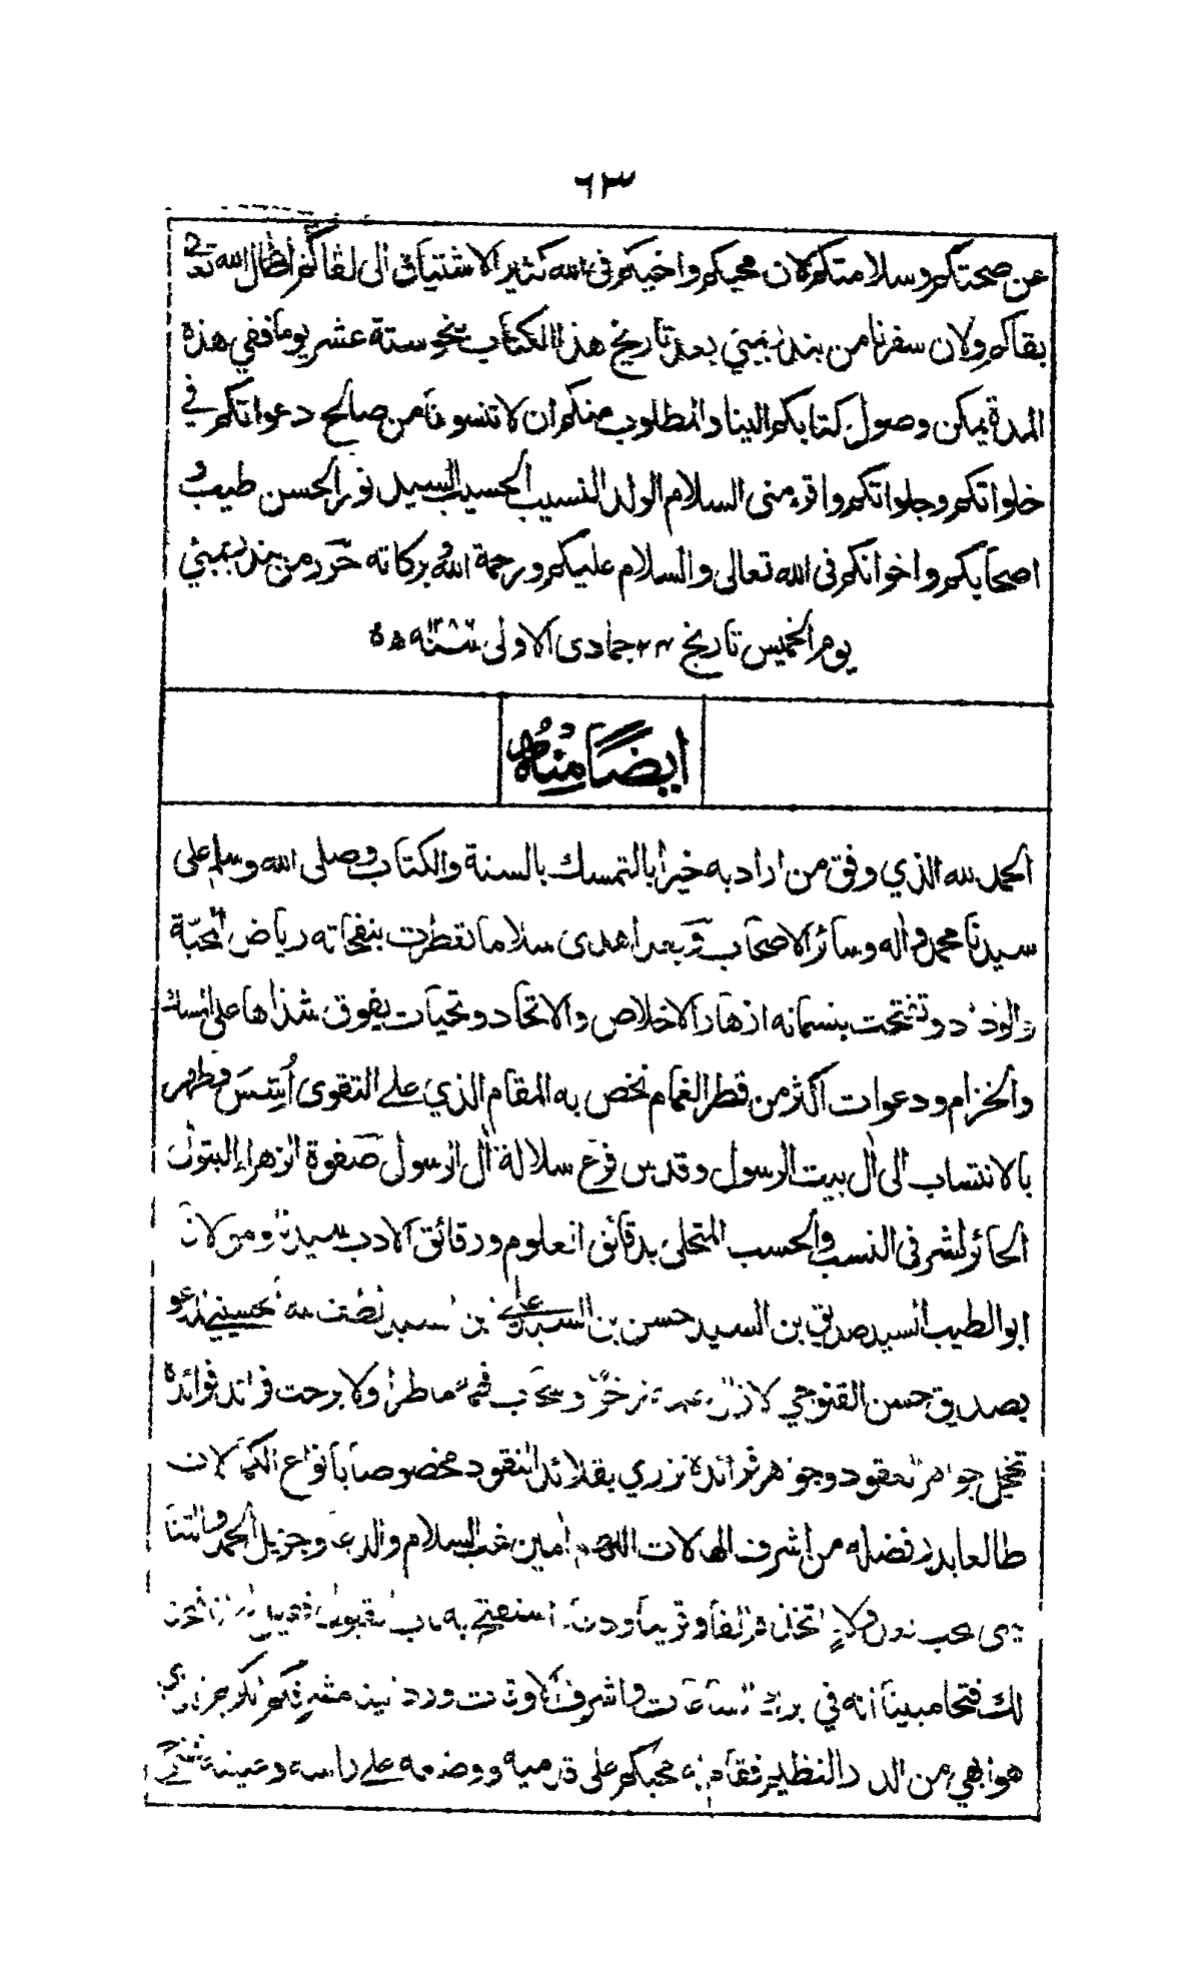 ٦٣
عن صحتكم وسلامتكم لان محبكم واخيكم فى الله كثير الاشتياق الى لقاكم اطال الله تعالى
بقاكم ولان سفرنا من بندر بمبئي بعد تاريخ هذا الكتاب بنحو ستة عشر يوما ففي هذه
المدة يمكن وصول كتابكم الينا والمطلوب منكم ان لا تنسونا من صالح دعواتكم في
خلواتكم وجلواتكم واقرء منى السلام الولد النسيب الحسيب السيد نور الحسن طيب و
اصحابكم واخوانكم فى الله تعالى والسلام عليكم ورحمة الله وبركاته حرر من بندر بمبئي
يوم الخميس تاريخ ٢٤ جمادى الاولى سنه ١٢٨٦ ه
ايضًا مِنْهُ
الحمد لله الذي وفق من اراد به خيرا بالتمسك بالسنة والكتاب وصلى الله وسلم على
سيدنا محمد واله وسائر الاصحاب وبعد اهدى سلاما تعطرت بنفحاته رياض المحبّة
والوداد وتفتحت بنسماته ازهار الاخلاص والاتحاد وتحيات يفوق شذاها على المسك
والخزام ودعوات اكثر من قطر الغمام نخص به المقام الذي على التقوى اُسِّسَ وطهر
بالانتساب الى اٰل بيت الرسول وقدس فرع سلالة اٰل الرسول صفوة الزهراء البتول
الحائز لشرفى النسب والحسب المتحلى بدقائق العلوم ورقائق الادب سيدنا ومولانا
ابو الطيب السيد صديق بن السيد حسن بن السيد على بن السيد لطف الله الحسيني المدعو
بصديق حسن القنوجي لا زال وسحاب ماطرا ولا برحت فرائد فوائده
تخجل جواهر العقود وجواهر فرائده تزري بقلائد النقود مخصوصا بانواع الكمالات
طالعا بدر فضله من اشرف الهالات اللهم امين غب السلام والدعا وجزيل الحمد والثنا
لك فتحا مبينا انه في الساعات واشرف الاوقات ورد الينا مشرفكم الكريم الذي
هو ابهي من الدر النظير فقام له محبكم على قدميه ووضعه على راسه وعينيه